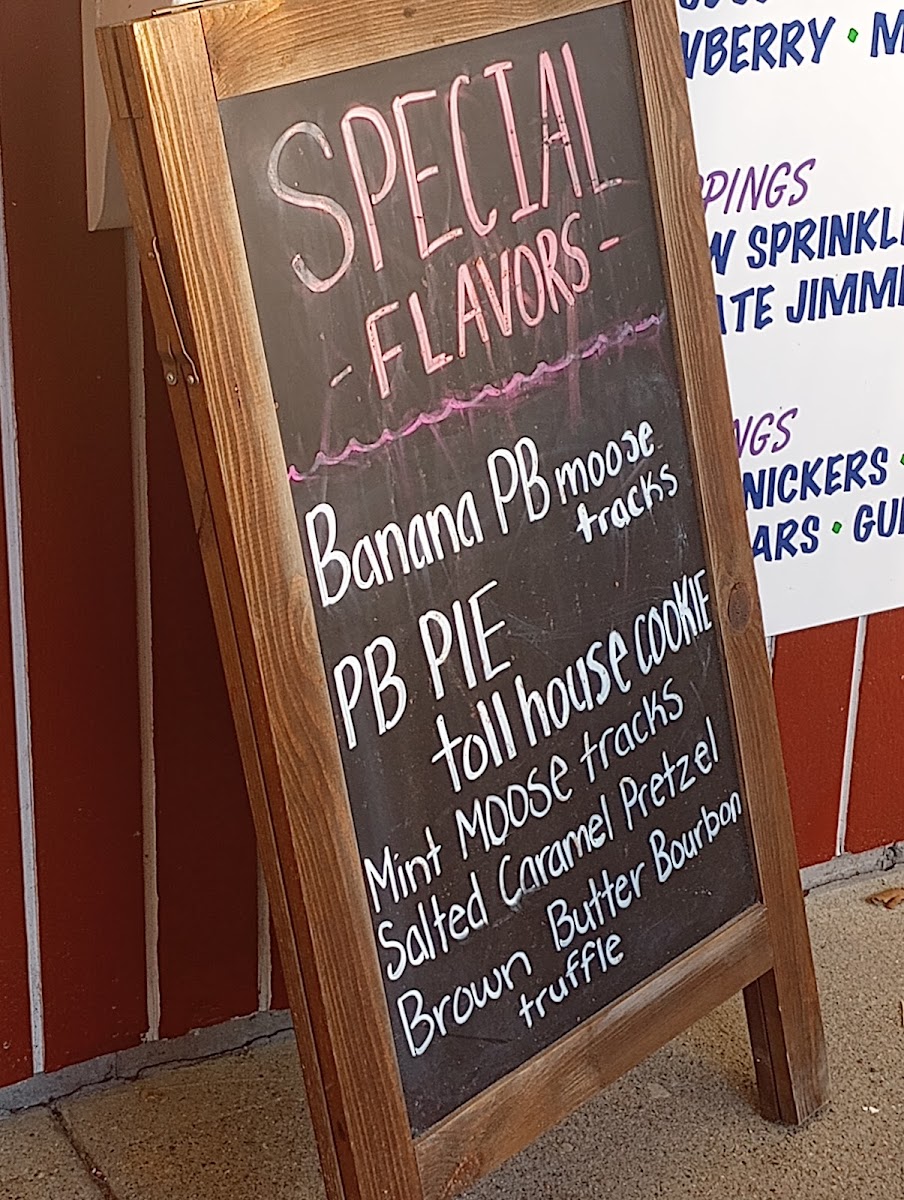 SPECIAL
- FLAVORS -
Banana PB moose
tracks
PB PIE
toll house COOKIE
Mint MOOSe tracks
Salted Caramel Pretzel
Brown Butter Bourbon
truffle
SPRINKL
JIMM